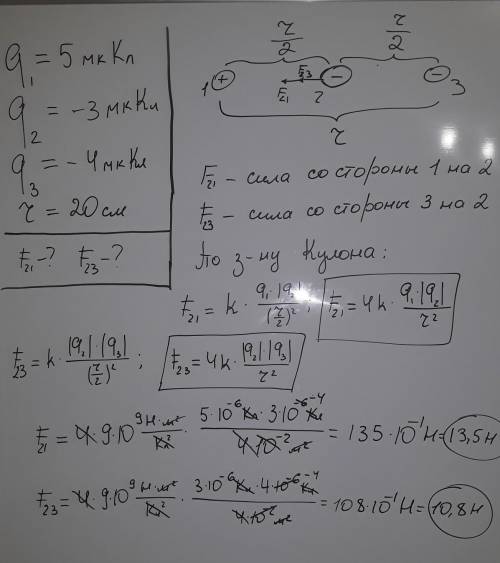 q₁ = 5 мкКл
q₂ = -3 мкКл
q₃ = -4 мкКл
r = 20 см
F₂₁ - ? F₂₃ - ?
r/2 r/2
1 + F₂₃ - - 3
F₂₁ 2
r
F₂₁ - сила со стороны 1 на 2
F₂₃ - сила со стороны 3 на 2
По з-ну Кулона:
F₂₁ = k · q₁·|q₂|/(r/2)²; F₂₁ = 4k · q₁·|q₂|/r²
F₂₃ = k · |q₂|·|q₃|/(r/2)²; F₂₃ = 4k · |q₂|·|q₃|/r²
F₂₁ = 4·9·10⁹ Н·м²/Кл² · 5·10⁻⁶ Кл · 3·10⁻⁶ ⁻⁴ Кл/4·10⁻² м² = 135·10⁻¹ Н = 13,5 Н
F₂₃ = 4·9·10⁹ Н·м²/Кл² · 3·10⁻⁶ Кл · 4·10⁻⁶ ⁻⁴ Кл/4·10⁻² м² = 108·10⁻¹ Н = 10,8 Н